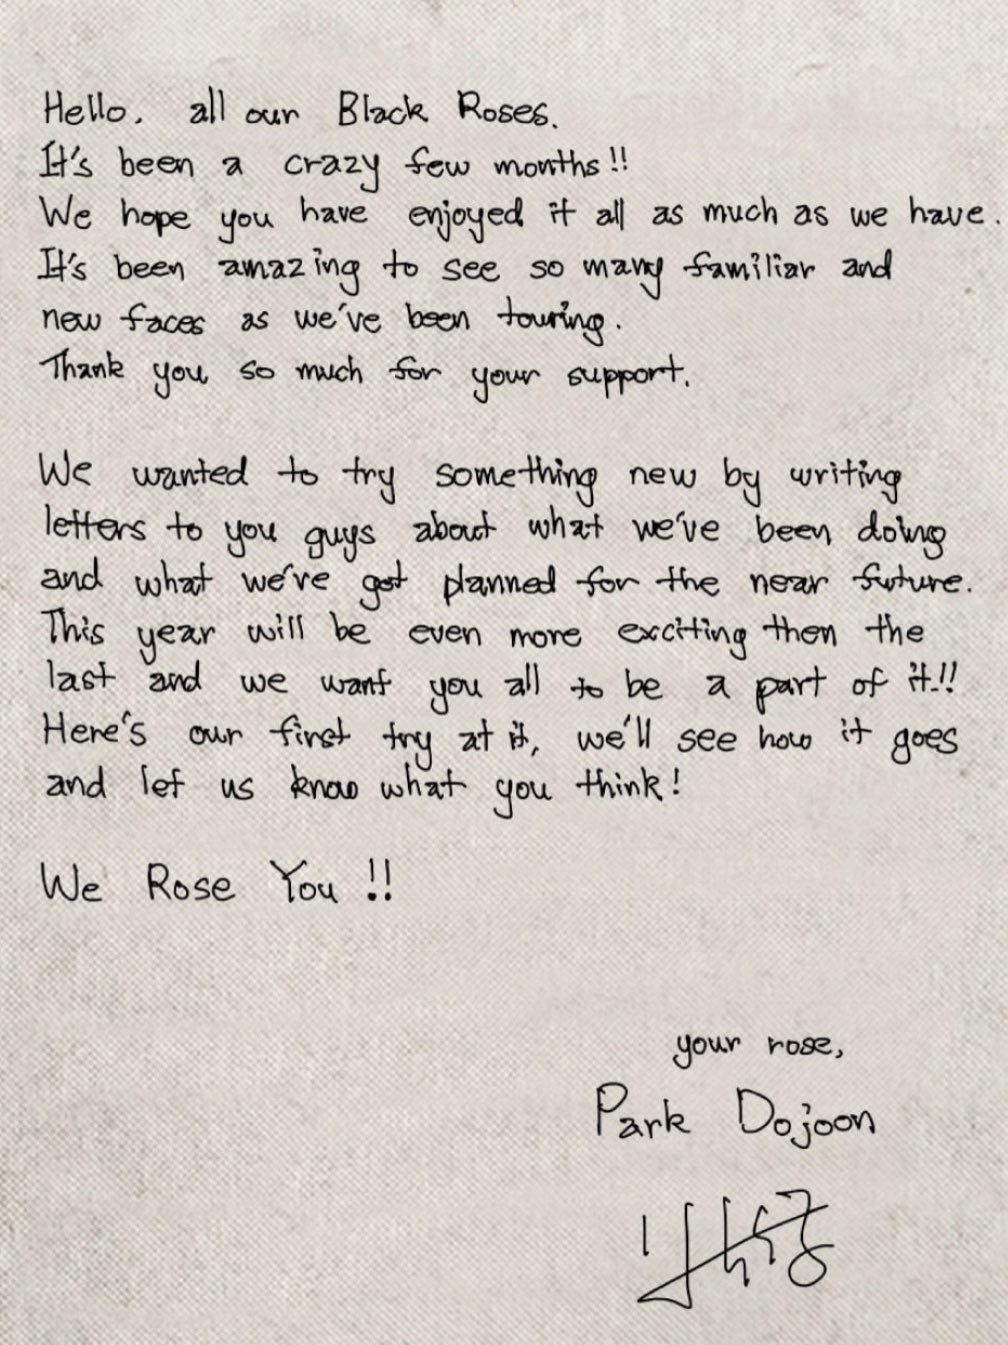 Hello. all our Black Roses.
It's been a crazy few months!!
We hope you have enjoyed it all as much as we have.
It's been amazing to see so many familiar and
new faces as we've been touring.
Thank you so much for your support.
We wanted to try something new by writing
letters to you guys about what we've been doing
and what we've got planned for the near future.
This year will be even more exciting then the
last and we want you all to be a part of it.!!
Here's our first try at it, we'll see how it goes
and let us know what you think!
We Rose You!!
your rose,
Park Dojoon